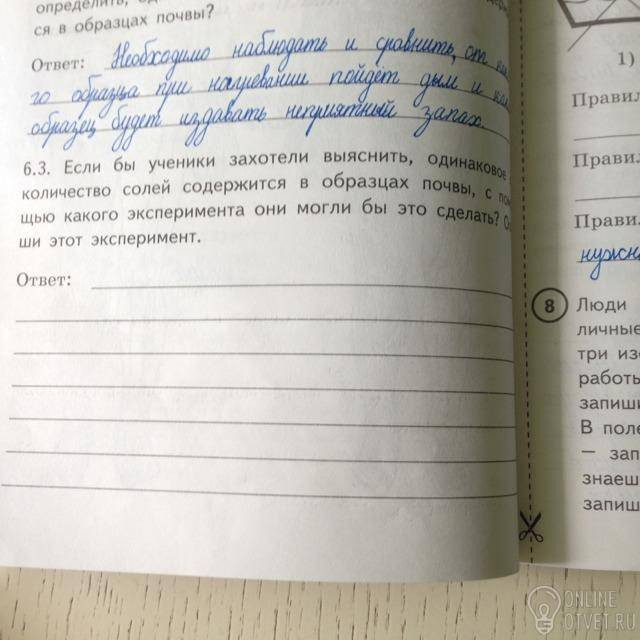 определить,
ся в образцах почвы?
Ответ: Необходимо наблюдать и сравнить, от
го образца при нагревании пойдет дым и
образец будет издавать неприятный запах.
6.3. Если бы ученики захотели выяснить, одинаковое
количество солей содержится в образцах почвы, с по
щью какого эксперимента они могли бы это сделать?
ши этот эксперимент.
Ответ:
1)
Правил
Правил
Правил
нужн
8 Люди
личные
три из
работы
запиши
В поле
— зап
знаеш
запиш
ONLINE
OTVET.RU